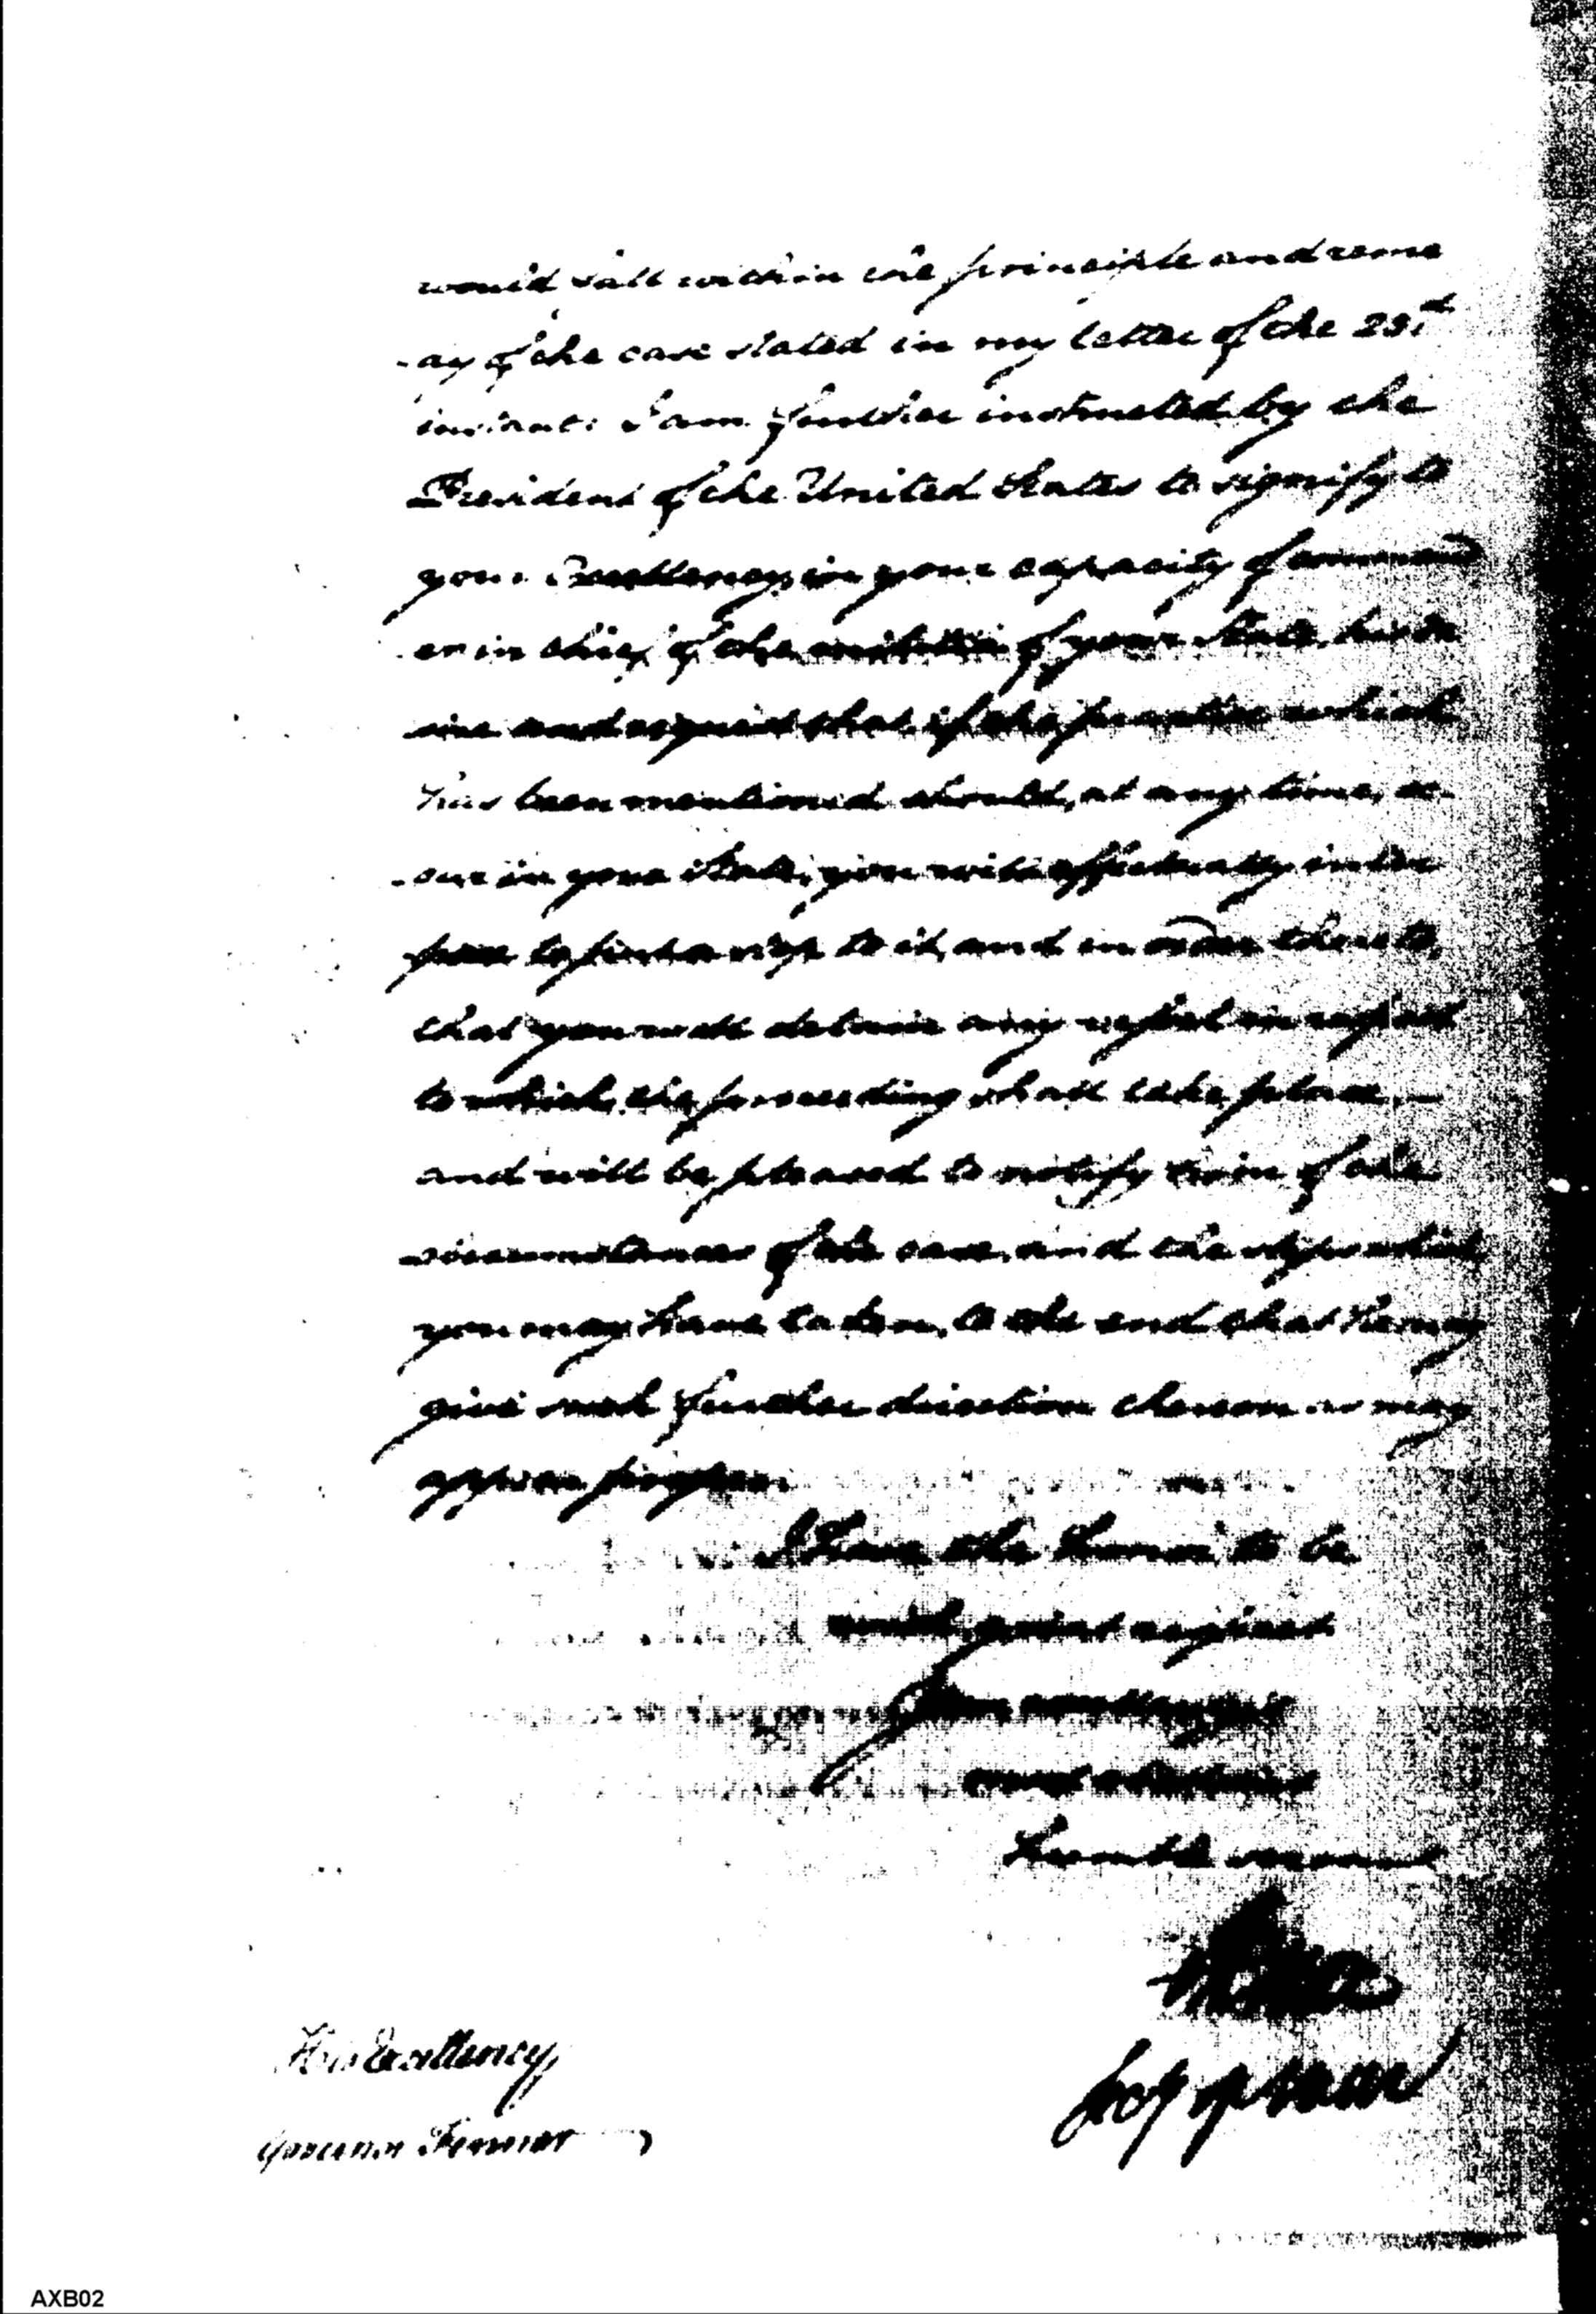 would fall within the principle and reme
-dy of the case stated in my letter of the 23d
instant: I am further instructed by the
President of the United States to signify to
your Excellency, in your capacity of command
er in chief of the militia of your State, his
and request that if the practice which
has been mentioned should, at any time, oc-
-cur in your State, you will effectually inter
pose to put a stop to it, and in order thereto,
that you will detain any vessel in respect
to which the proceeding shall take place —
and will be pleased to notify him of the
circumstances of the case, and the steps which
you may have taken, to the end that he may
give such further direction thereon as may
appear proper.
I have the honor to be
with great respect
Your Excellency's
most obedient
humble servant
HKnox
Secy of War
His Excellency,
Governor Fenner
AXB02